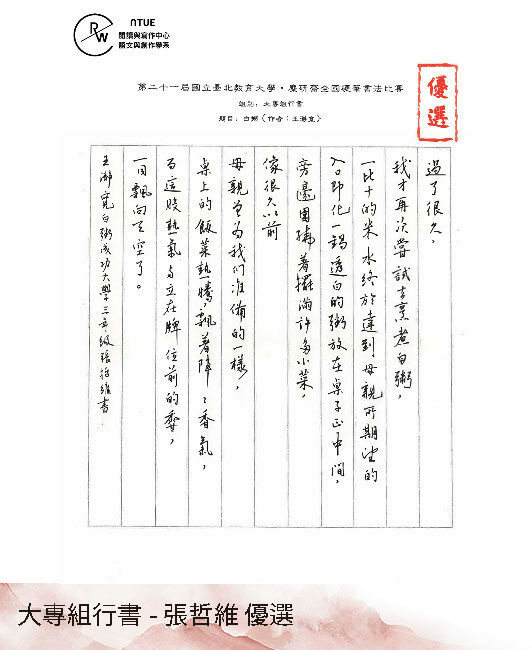 NTUE
閱讀與寫作中心
語文與創作學系
RW
第二十一屆國立臺北教育大學・麋研齋全國硬筆書法比賽
組別：大專組行書
題目：白粥（作者：王瀞寬）
優選
過了很久，
我才再次嘗試去烹煮白粥，
一比十的米水終於達到母親所期望的
入口即化一鍋透白的粥放在桌子正中間，
旁邊圍繞著擺滿許多小菜，
像很久以前
母親曾為我們準備的一樣，
桌上的飯菜熱騰，飄著陣々香氣，
而這股熱氣與立在牌位前的香，
一同飄向天空了。
王瀞寬白粥成功大學三年級張哲維書
大專組行書 - 張哲維 優選